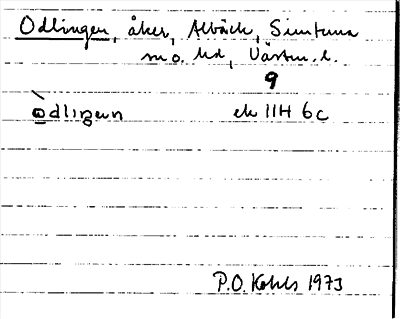 Odlingen, åker, Albäck, Simtuna
sn o. hd, Västm. l.
9
òdlingen ek 11H 6c
P.O. Kohls 1973